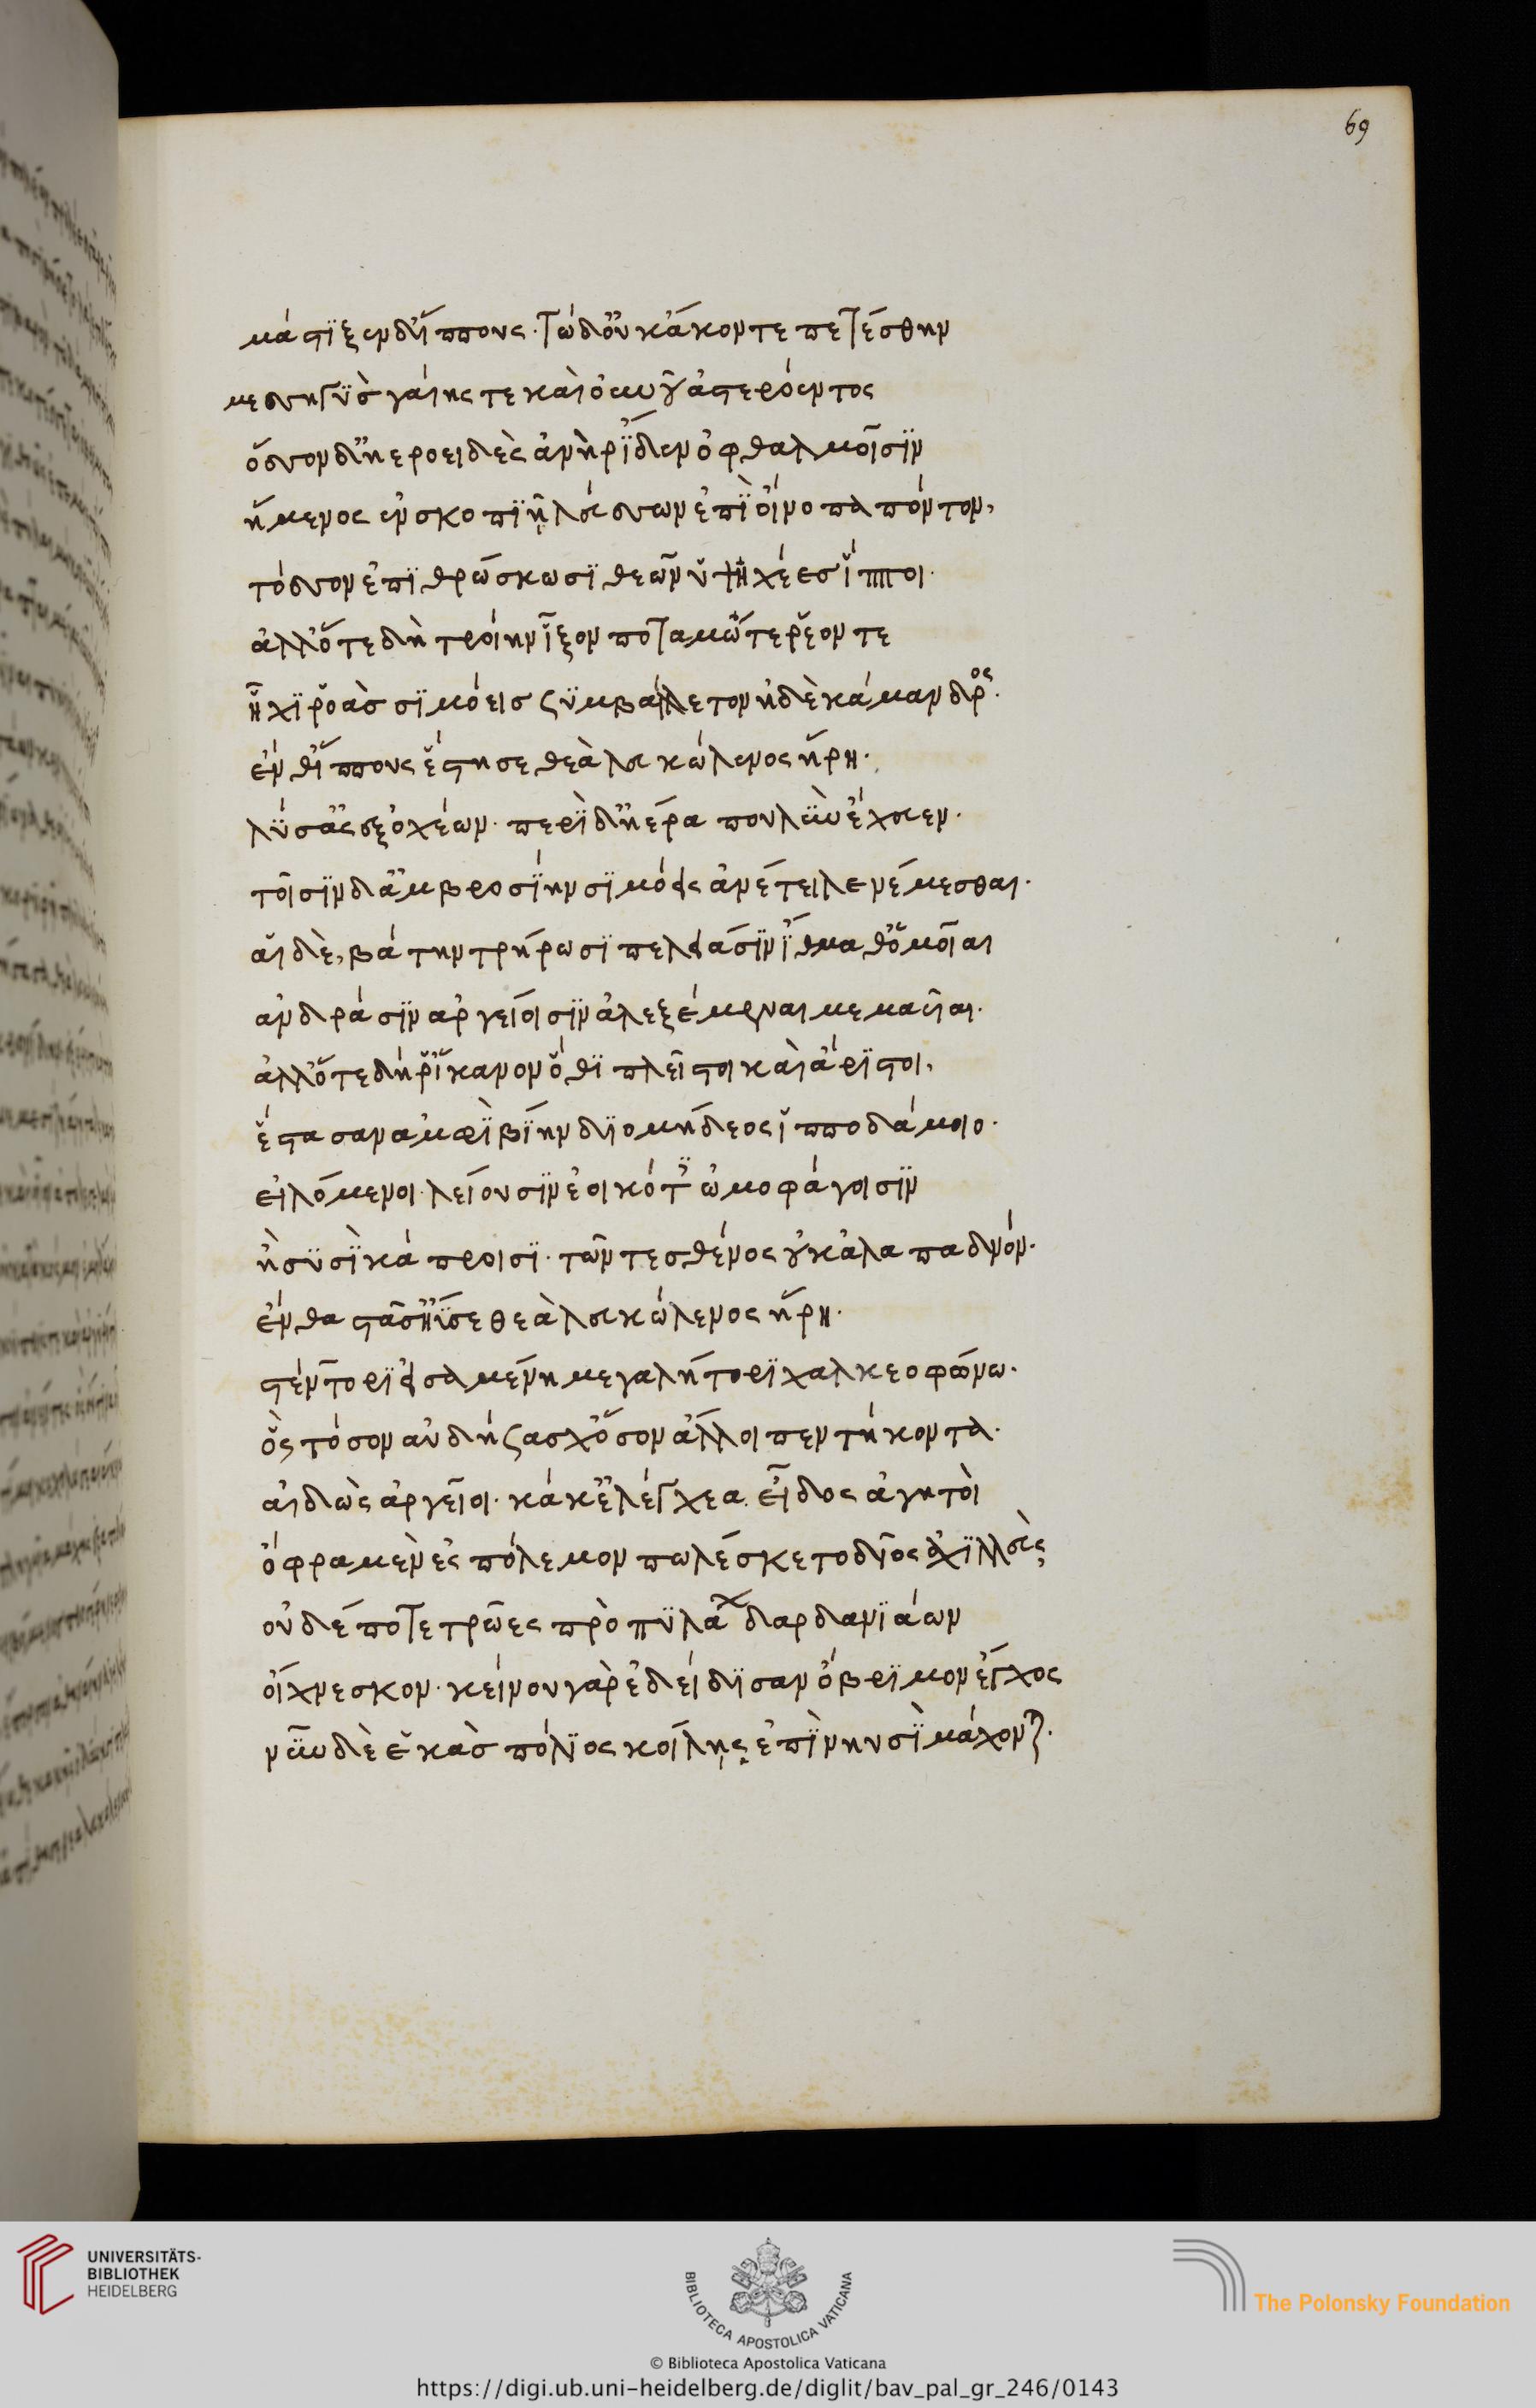 69
μάστιξεν δ' ἵππους· τὼ δ' οὐκ ἄκοντε πετέσθην
μεσσηγὺς γαίης τε καὶ οὐρανοῦ ἀστερόεντος
ὅσσον δ' ἠεροειδὲς ἀνὴρ ἴδεν ὀφθαλμοῖσιν
ἥμενος ἐν σκοπιῇ λεύσσων ἐπὶ οἴνοπα πόντον,
τόσσον ἐπιθρώσκωσι θεῶν ὑψηχέες ἵπποι·
ἀλλ' ὅτε δὴ τροίην ἷξον ποταμώ τε ῥέοντε
ἧχι ῥοὰς σιμόεις συμβάλλετον ἠδὲ κάμανδρος·
ἔνθ' ἵππους ἔστησε θεὰ λευκώλενος ἥρη·
λύσασ' ἐξ ὀχέων· περὶ δ' ἠέρα πουλὺν ἔχευεν·
τοῖσιν δ' ἀμβροσίην σιμόεις ἀνέτειλε νέμεσθαι·
αἱ δὲ, βάτην τρήρωσι πελειάσιν ἴθμαθ' ὁμοῖαι
ἀνδράσιν ἀργείοισιν ἀλεξέμεναι μεμαυῖαι·
ἀλλ' ὅτε δή ῥ' ἵκανον ὅθι πλεῖστοι καὶ ἄριστοι,
ἕστασαν ἀμφὶ βίην διομήδεος ἱπποδάμοιο·
εἰλόμενοι· λείουσιν ἐοικότες ὠμοφάγοισιν
ἢ συσὶ κάπροισι· τῶν τε σθένος οὐκ ἀλαπαδνόν·
ἔνθα στᾶσ' ἤϋσε θεὰ λευκώλενος ἥρη·
στέντορι εἰσαμένη μεγαλήτορι χαλκεοφώνω·
ὃς τόσον αὐδήσασχ' ὅσον ἄλλοι πεντήκοντα·
αἰδὼς ἀργεῖοι· κάκ' ἐλέγχεα. εἶδος ἀγητοὶ
ὄφρα μὲν ἐς πόλεμον πωλέσκετο δῖος ἀχιλλεὺς
οὐδέποτε τρῶες πρὸ πυλάων δαρδανιάων
οἴχνεσκον· κείνου γὰρ ἐδείδισαν ὄβριμον ἔγχος
νῦν δὲ ἑκὰς πόλιος κοίλῃς ἐπὶ νηυσὶ μάχονται·
UNIVERSITÄTS-
BIBLIOTHEK
HEIDELBERG
BIBLIOTECA APOSTOLICA VATICANA
The Polonsky Foundation
© Biblioteca Apostolica Vaticana
https://digi.ub.uni-heidelberg.de/diglit/bav_pal_gr_246/0143